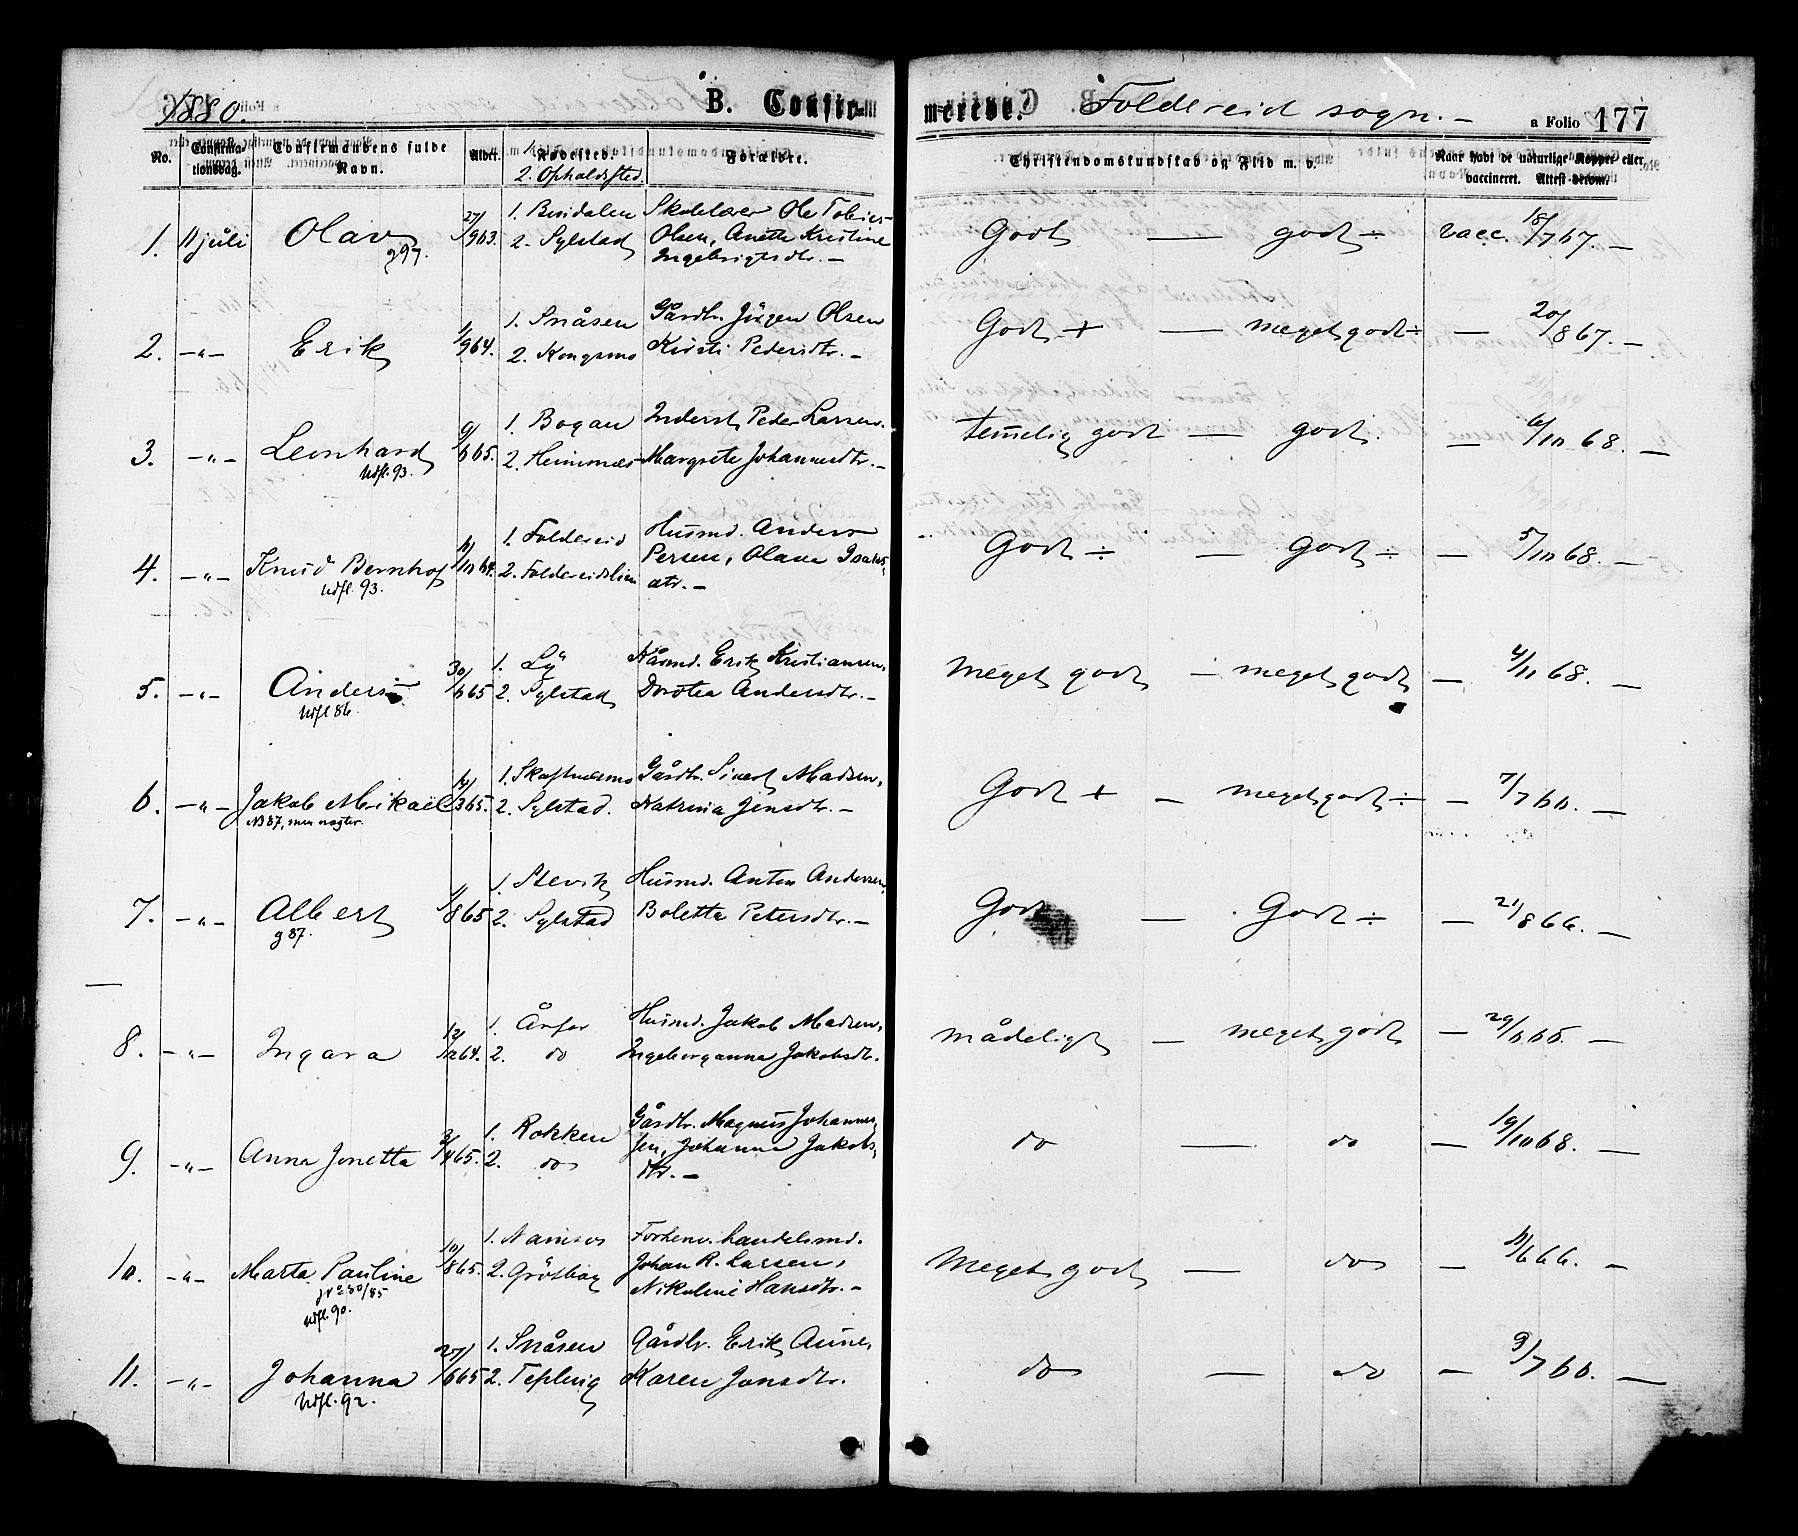 1880. B. Confirmerede. Foldereid sogn. – a Folio 177
No. Confirmationsdag. Confirmandens fulde Navn. Alder. 1. Fødested. 2. Opholdssted. Forældre. Christendomskundskab og Flid m. v. Naar havt de naturlige Kopper eller vaccineret. Attest derom.
1. 11 juli Olav 27/9 63. 1. Bindalen Skolelærer Ole Tobias Godt — godt ÷ vacc. 18/7 67. –
g 97. 2. Sylstad Olsen, Anette Kristine
Ingebrigtsdtr. –
2. –„– Erik 1/9 64. 1. Snåsen Gårdbr. Jörgen Olsen Godt + — meget godt ÷ — 20/8 67. –
2. Kongsmo Kirsti Pedersdtr. –
3. –„– Leonhard 9/6 65. 1. Bogan Inderst Peder Larsen. temelig godt — godt. — 6/10 68. –
Udfl. 93. 2. Heimnes Margrete Johannesdtr. –
4. –„– Knud Bernhof 11/10 64. 1. Foldereid Husmd. Anders Godt ÷ — Godt ÷ — 5/10 68. –
Udfl. 93. 2. Foldereidslien Persen, Olava Isaks-
dtr. –
5. –„– Anders 30/6 65 1. Lÿ Kårmd. Erik Kristiansen, Meget godt – meget godt — 4/11 68. –
Udfl 86. 2. Sylstad Dorotea Andersdtr. –
6. –„– Jakob Mikael 12/3 65. 1. Skaftnesmo Gårdbr. Sivert Madsen, Godt + – meget godt ÷ – 7/7 66. –
NB 87, men nægter. 2. Sylstad. Katrina Jensdtr. –
7. –„– Albert 1/8 65 1. Stevik Husmd. Anton Andersen, Godt — Godt ÷ — 21/8 66. –
g 87. 2. Sylstad Boletta Petersdtr. –
8. –„– Ingara 12/12 64. 1. Årfor Husmd. Jakob Madsen, mådeligt – meget godt – 29/6 65. –
2. do Ingeborganna Jakobsdtr.
9. –„– Anna Jonetta 3/4 65. 1. Rokken Gårdbr. Magnus Johannes- do — do – 19/10 68. –
2. do sen, Johanna Jakobs-
dtr. –
10. –„– Marta Pauline 10/8 65. 1. Namsos Forhenv. handelsmd. Meget godt — do – 11/6 66. –
№ 30/85 2. Grötbog Johan R. Larsen,
Udfl. 90. Nikoline Hansdtr. –
11. –„– Johanna 27/6 65 1. Snåsen Gårdbr. Erik Aune, do — do – 9/7 66. –
Udfl. 92. 2. Tepling Karen Jonsdtr.